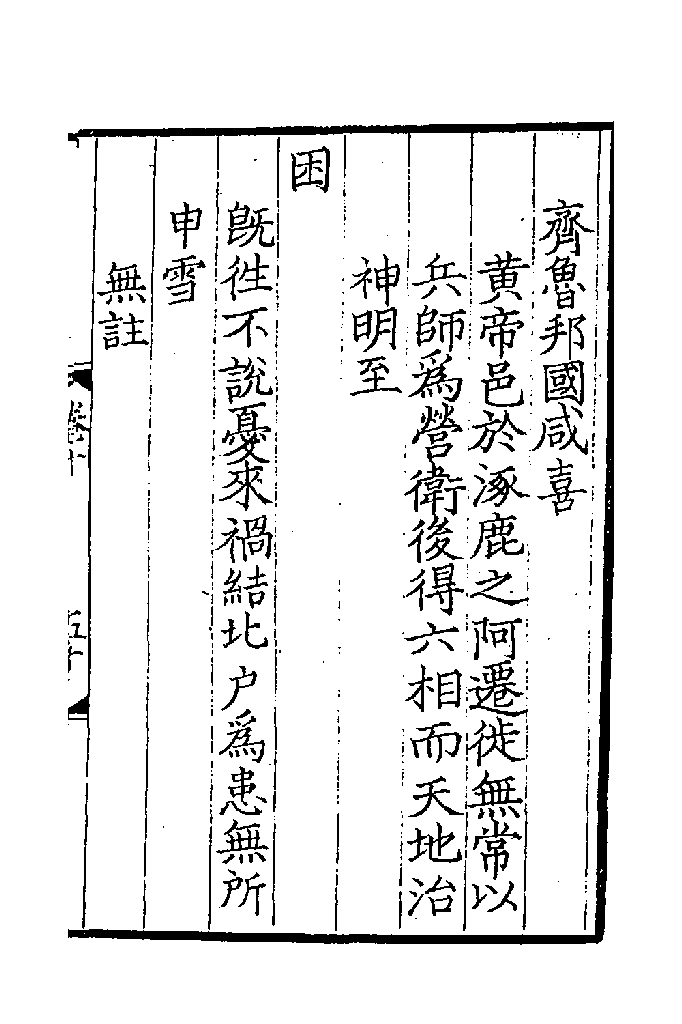 齊魯邦國咸喜
黄帝邑於涿鹿之阿遷徙無常以
兵師爲營衛後得六相而天地治
神明至
困
旣徃不說憂來禍結北户爲患無所
申雪
無註
卷十
五十